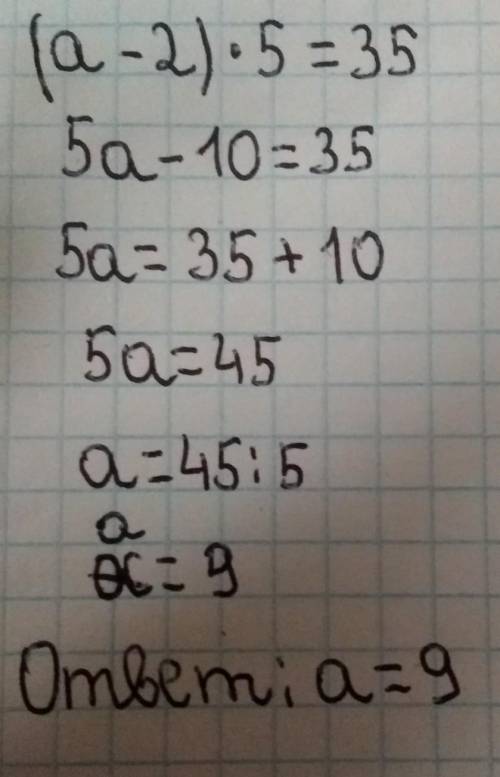 (a - 2) · 5 = 35
5a - 10 = 35
5a = 35 + 10
5a = 45
a = 45 : 5
a = 9
Ответ: a = 9